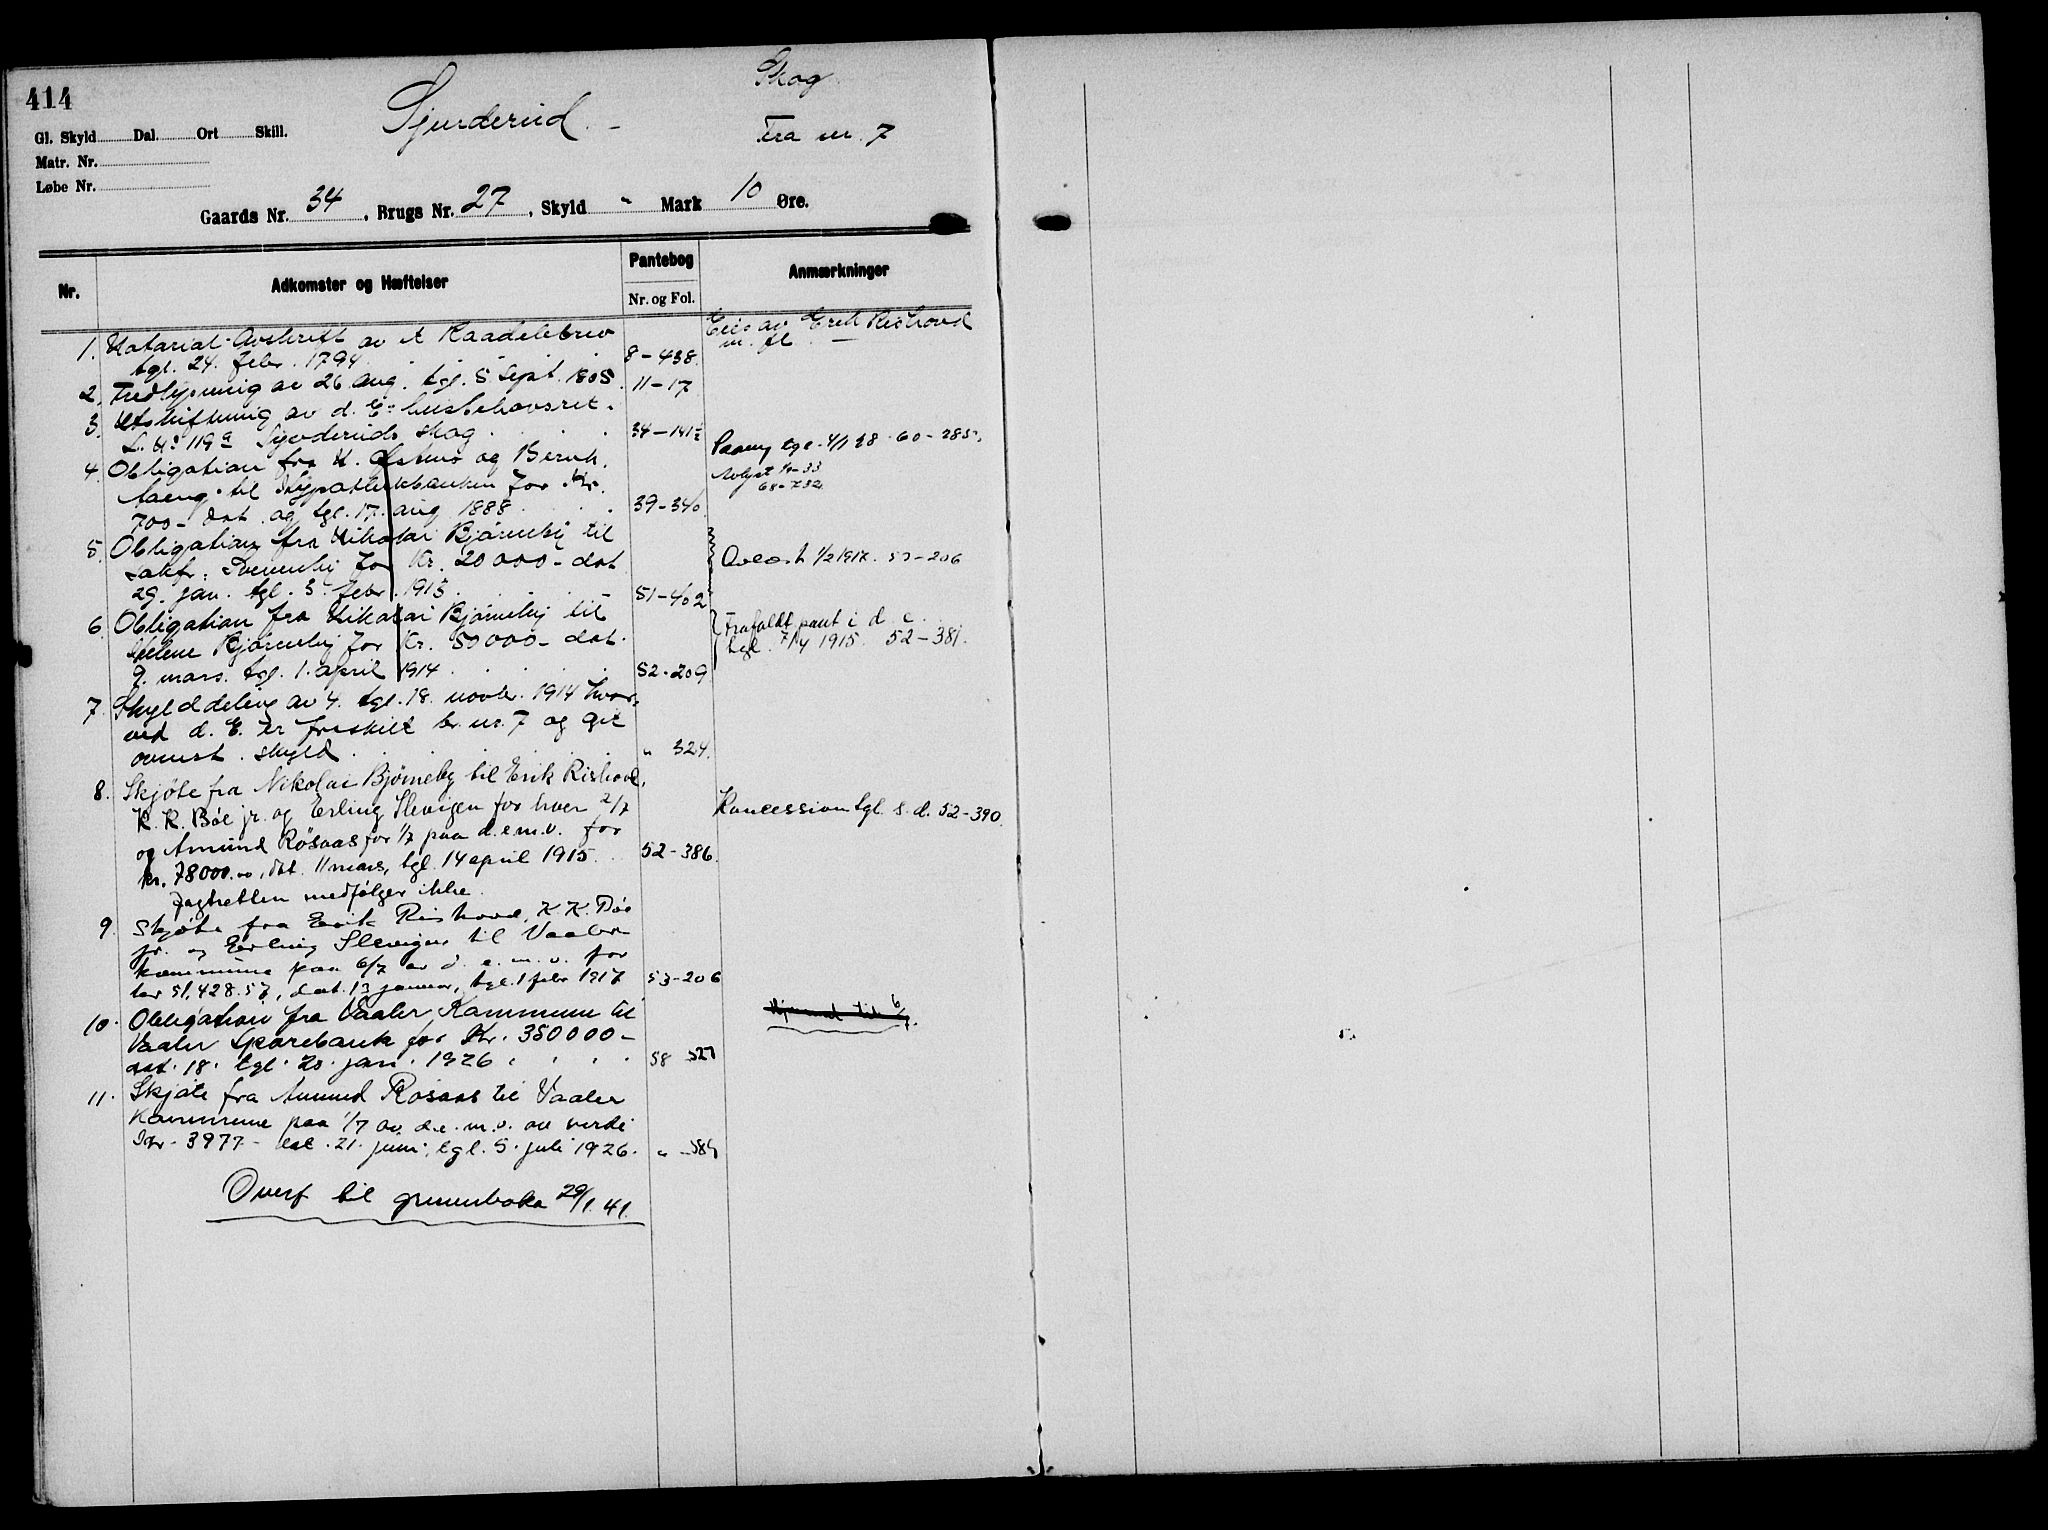 414
Skog
Sjurderud. -
Fra nr. 7
Gl. Skyld Dal. Ort Skill.
Matr. Nr.
Løbe Nr.
Gaards Nr. 34, Brugs Nr. 27, Skyld " Mark 10 Øre.
Nr. Adkomster og Hæftelser Pantebog Anmærkninger
Nr. og Fol.
1. Notarial-Avskrift av et Raadelebrev Eies av Erik Rishovd
tgl. 24. febr. 1794. 8-438. m. fl. —
2. Fredlysning av 26 aug. tgl. 5 sept. 1805. 11-17
3. Utskiftning av d. E: husbehovsret.
L. No 119a Sjurderuds skog. 34-141
4. Obligation fra N. og Bernh. tgl. 4/1 28. 60-285.
til Hypothekbanken for Kr. Avlyst 33
68-732
700- dat. og tgl. 17. aug 1888. 39-340.
5. Obligation fra Nikolai Bjørneby til
sakf. for Kr. 20000- dat. Avlyst 1/2 1917. 53-206
29. jan. tgl. 5. febr. 1913. 51-402
6. Obligation fra Nikolai Bjørneby til
Helene Bjørneby for Kr. 50000- dat. Frafaldt pant i d. e.
tgl. 7/4 1915. 52-381.
9. mars. tgl. 1. april 1914 52-209
7. Skylddeling av 4. tgl. 18. novbr. 1914 hvor-
ved d. E. er fraskilt br. nr. 7 og git
ovenst. skyld. " 324.
8. Skjøte fra Nikolai Bjørneby til Erik Rishovd,
K. K. Bøe jr. og Erling Slevigen for hver 2/7 Koncession tgl. s. d. 52-390.
og Amund Røsaas for 1/7 paa d.e.m.v. for
kr. 78000.00, dat. 11 mars, tgl. 14 april 1915. 52-386.
Jagtretten medfølger ikke.
9. Skjøte fra Erik Rishovd, K. K. Bøe
jr. og Erling Slevigen til Vaaler
kommune paa 6/7 av d. e. m. v. for
kr 51,428.57, dat. 13 januar, tgl. 1 febr 1917 53-206
10. Obligation fra Vaaler Kommune til 6/7.
Vaaler Sparebank for Kr. 350000-
dat. 18. tgl. 20. jan. 1926 58 527
11. Skjøte fra Amund Røsaas til Vaaler
Kommune paa 1/7 av d.e.m.v. av verdi
Kr - 3977- dat. 21. juni, tgl. 5. juli 1926. " -584
Overf til grunnboka 29/1. 41.